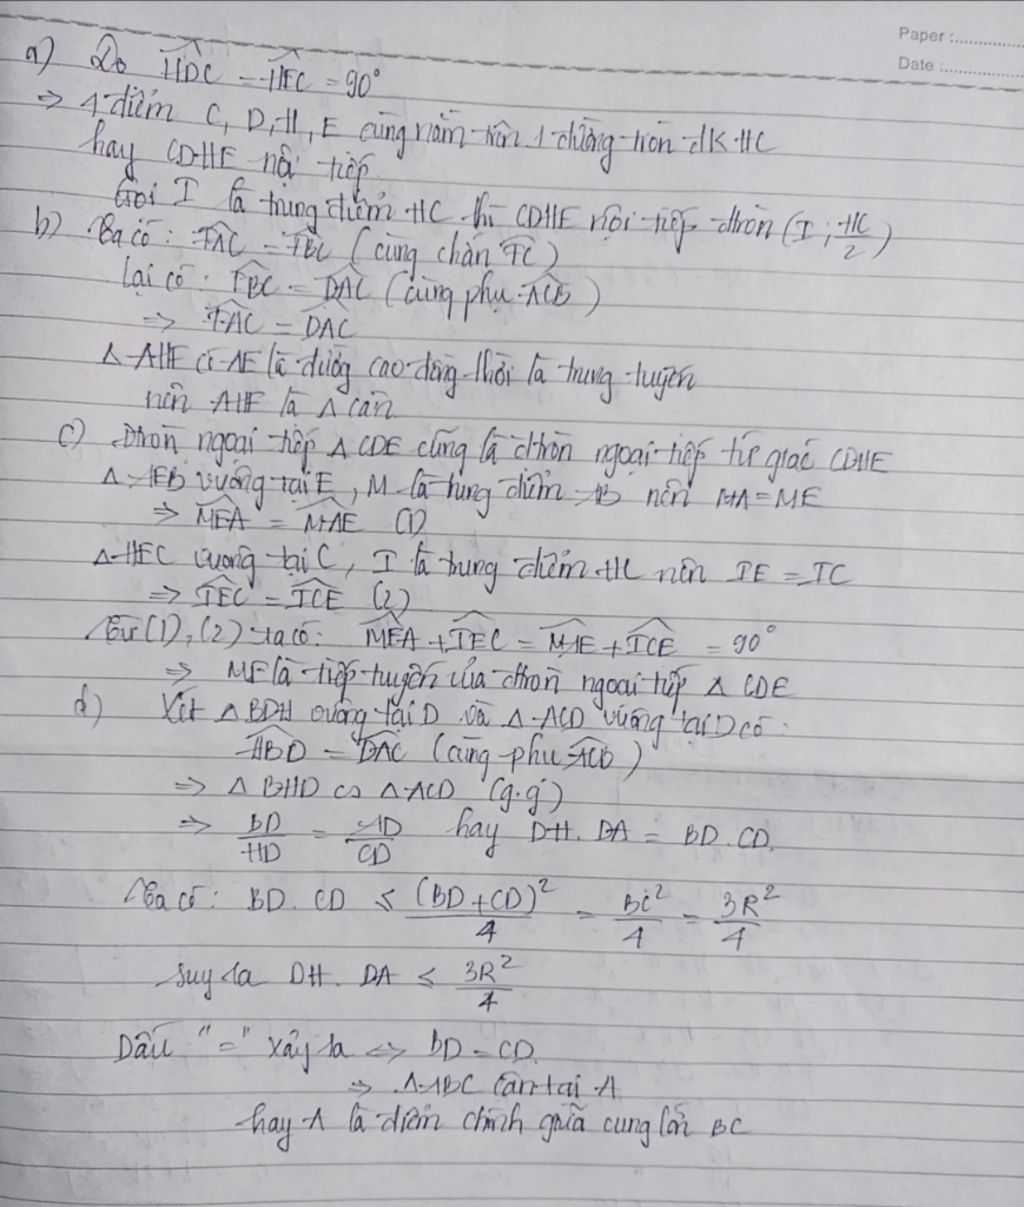 Paper :..............
Date :................
a) Do HDC = HEC = 90°
⇒ 4 điểm C, D, H, E cùng nằm trên 1 đường tròn đk HC
hay CDHE nội tiếp
Gọi I là trung điểm HC thì CDHE nội tiếp đtròn (I; HC/2)
b) Ta có: FAC = FBC (cùng chắn FC)
Lại có: FBC = DAC (cùng phụ ACB)
⇒ FAC = DAC
Δ AHF có AE là đường cao đồng thời là trung tuyến
nên AHF là Δ cân
c) Đtròn ngoại tiếp Δ CDE cũng là đtròn ngoại tiếp tứ giác CDHE
Δ AEB vuông tại E, M là trung điểm AB nên MA = ME
⇒ MEA = MAE (1)
Δ HEC vuông tại C, I là trung điểm HC nên IE = IC
⇒ IEC = ICE (2)
Từ (1), (2) ta có: MEA + IEC = MAE + ICE = 90°
⇒ ME là tiếp tuyến của đtròn ngoại tiếp Δ CDE
d) Xét Δ BDH vuông tại D và Δ ACD vuông tại D có:
HBD = DAC (cùng phụ ACD)
⇒ Δ BHD ∽ Δ ACD (g.g)
⇒ BD/HD = AD/CD hay DH. DA = BD. CD.
Ta có: BD. CD ≤ (BD + CD)²/4 = BC²/4 = 3R²/4
Suy ra DH. DA ≤ 3R²/4
Dấu "=" xảy ra ⇔ BD = CD.
⇒ Δ ABC cân tại A
hay A là điểm chính giữa cung lớn BC